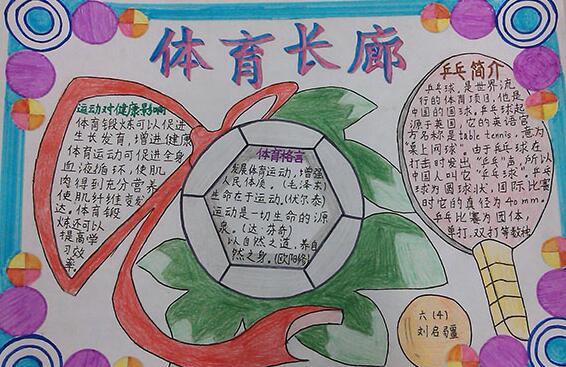 体育长廊
运动对健康影响
体育锻炼可以促进
生长发育,增进健康
体育运动可促进全身
血液循环,使肌
肉得到充分营养
使肌纤维变发
达。体育锻
炼还可以
提高学
习效
率
体育格言
发展体育运动,增强
人民体质。(毛泽东)
生命在于运动。(伏尔泰)
运动是一切生命的源
泉。(达·芬奇)
以自然之道,养自
然之身。(欧阳修)
乒乓简介
乒乓球,是世界流
行的体育项目,他是
中国的国球,乒乓球起
源于英国,它的英语官
方名称是table tennis,意为
"桌上网球"。由于乒乓球在
打击时发出"乒乓"声,所以
中国人叫它"乒乓球"。乒乓
球为圆球状,国际比赛
时它的直径为40mm。
乒乓比赛为团体,
单打,双打等数种
六(4)